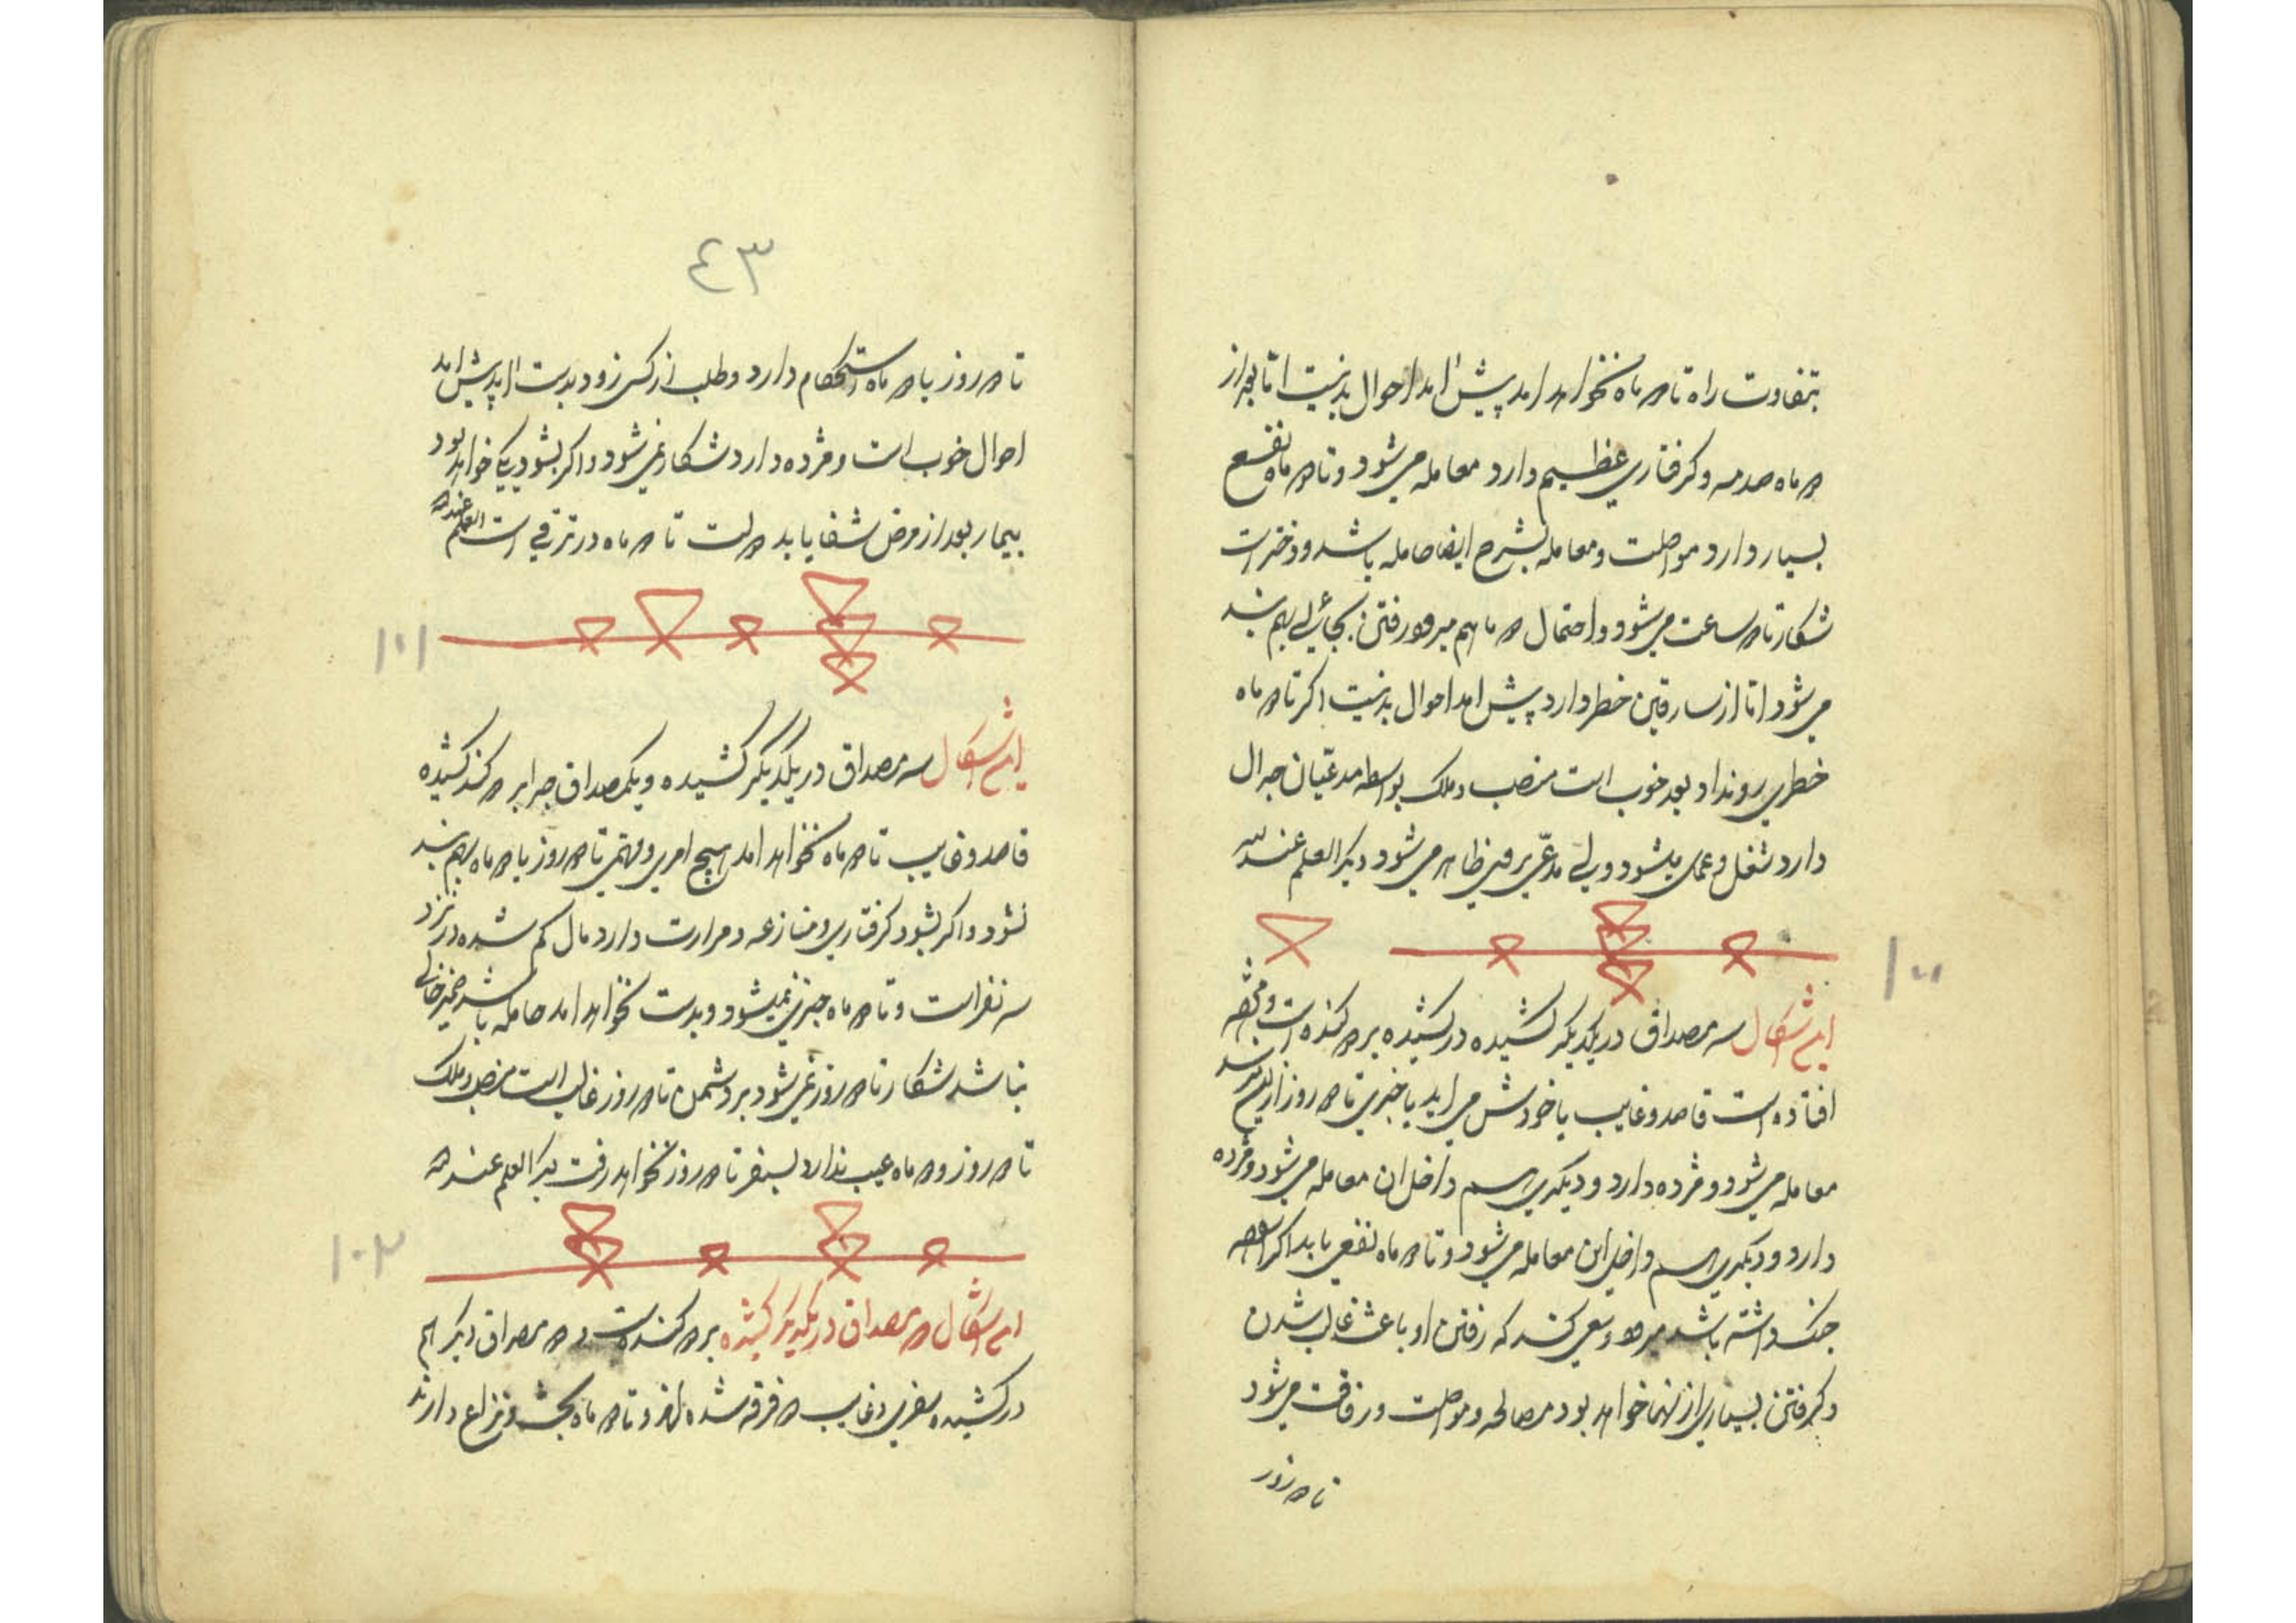 تفاوت راه تا ۳ ماه نخواهد امد پیش امد احوال بد نیست اما بعد از
۳ ماه صدمه و کرفتاری عظیم دارد معامله می شود و تا ۳ ماه نفع
بسیار دارد مواصلت و معامله بشرح ایضا حامله باشد و دختر است
شکار تا ۳ ساعت می شود و احتمال ۳ ما هم میرود رفتن بجائی بهم
می شود اما از خطر دارد پیش امد احوال بد نیست اکر تا ۳ ماه
خطری رو نداد بعد خوب است منصب و ملک بواسطه مدعیان جدال
دارد شغل و عمل میشود ولی مدعی ظاهر می شود دیکر العلم عند الله
۱۰۰
این اشکال سه مصداق در یکدیکر کشیده در کشیده بر ۳ کنده است و
افتاده است قاصد و غایب یا خودش می اید یا خبری تا ۳ روز
معامله می شود و مژده دارد و دیکری اسم داخل ان معامله می شود و مژده
دارد و دیکری اسم داخل این معامله می شود و تا ۳ ماه نفعی یابد اکر
جنک داشته باشد میرود و سعی کند که رفتن او باعث غالب شدن
و کرفتن بسیاری از خواهد بود مصالحه و مواصلت و رفاقت می شود
تا ۳ روز
٤٣
تا ۳ روز یا ۳ ماه استحکام دارد و طلب از کسی زود بدست اید پیش امد
احوال خوب است و مژده دارد شکار نمی شود و اکر بشود یکی خواهد بود
بیمار بعد از مرض شفا یابد تا ۳ ماه در ترقی است العلم عند الله
۱۰۱
این اشکال سه مصداق در یکدیکر کشیده و یکمصداق کشیده
قاصد و غایب تا ۳ ماه نخواهد امد هیچ امری و مهمی تا ۳ روز یا ۳ ماه بهم
نشود و اکر بشود کرفتاری و منازعه و مرارت دارد مال کم شده در نزد
سه نفر است و تا ۳ ماه خبری نمیشود و بدست نخواهد امد حامله باشد
نباشد شکار تا ۳ روز نمی شود بر دشمن تا ۳ روز غالب است منصب و ملک
تا ۳ روز و ۳ ماه عیب ندارد بسفر تا ۳ روز نخواهد رفت دیکر العلم عند الله
۱۰۲
این اشکال ۳ مصداق در یکدیکر کشیده بر ۳ کنده است و ۳ مصداق دیکر هم
در کشیده سفری و غایب ۳ فرقه شده اند و تا ۳ ماه بحث و نزاع دارند